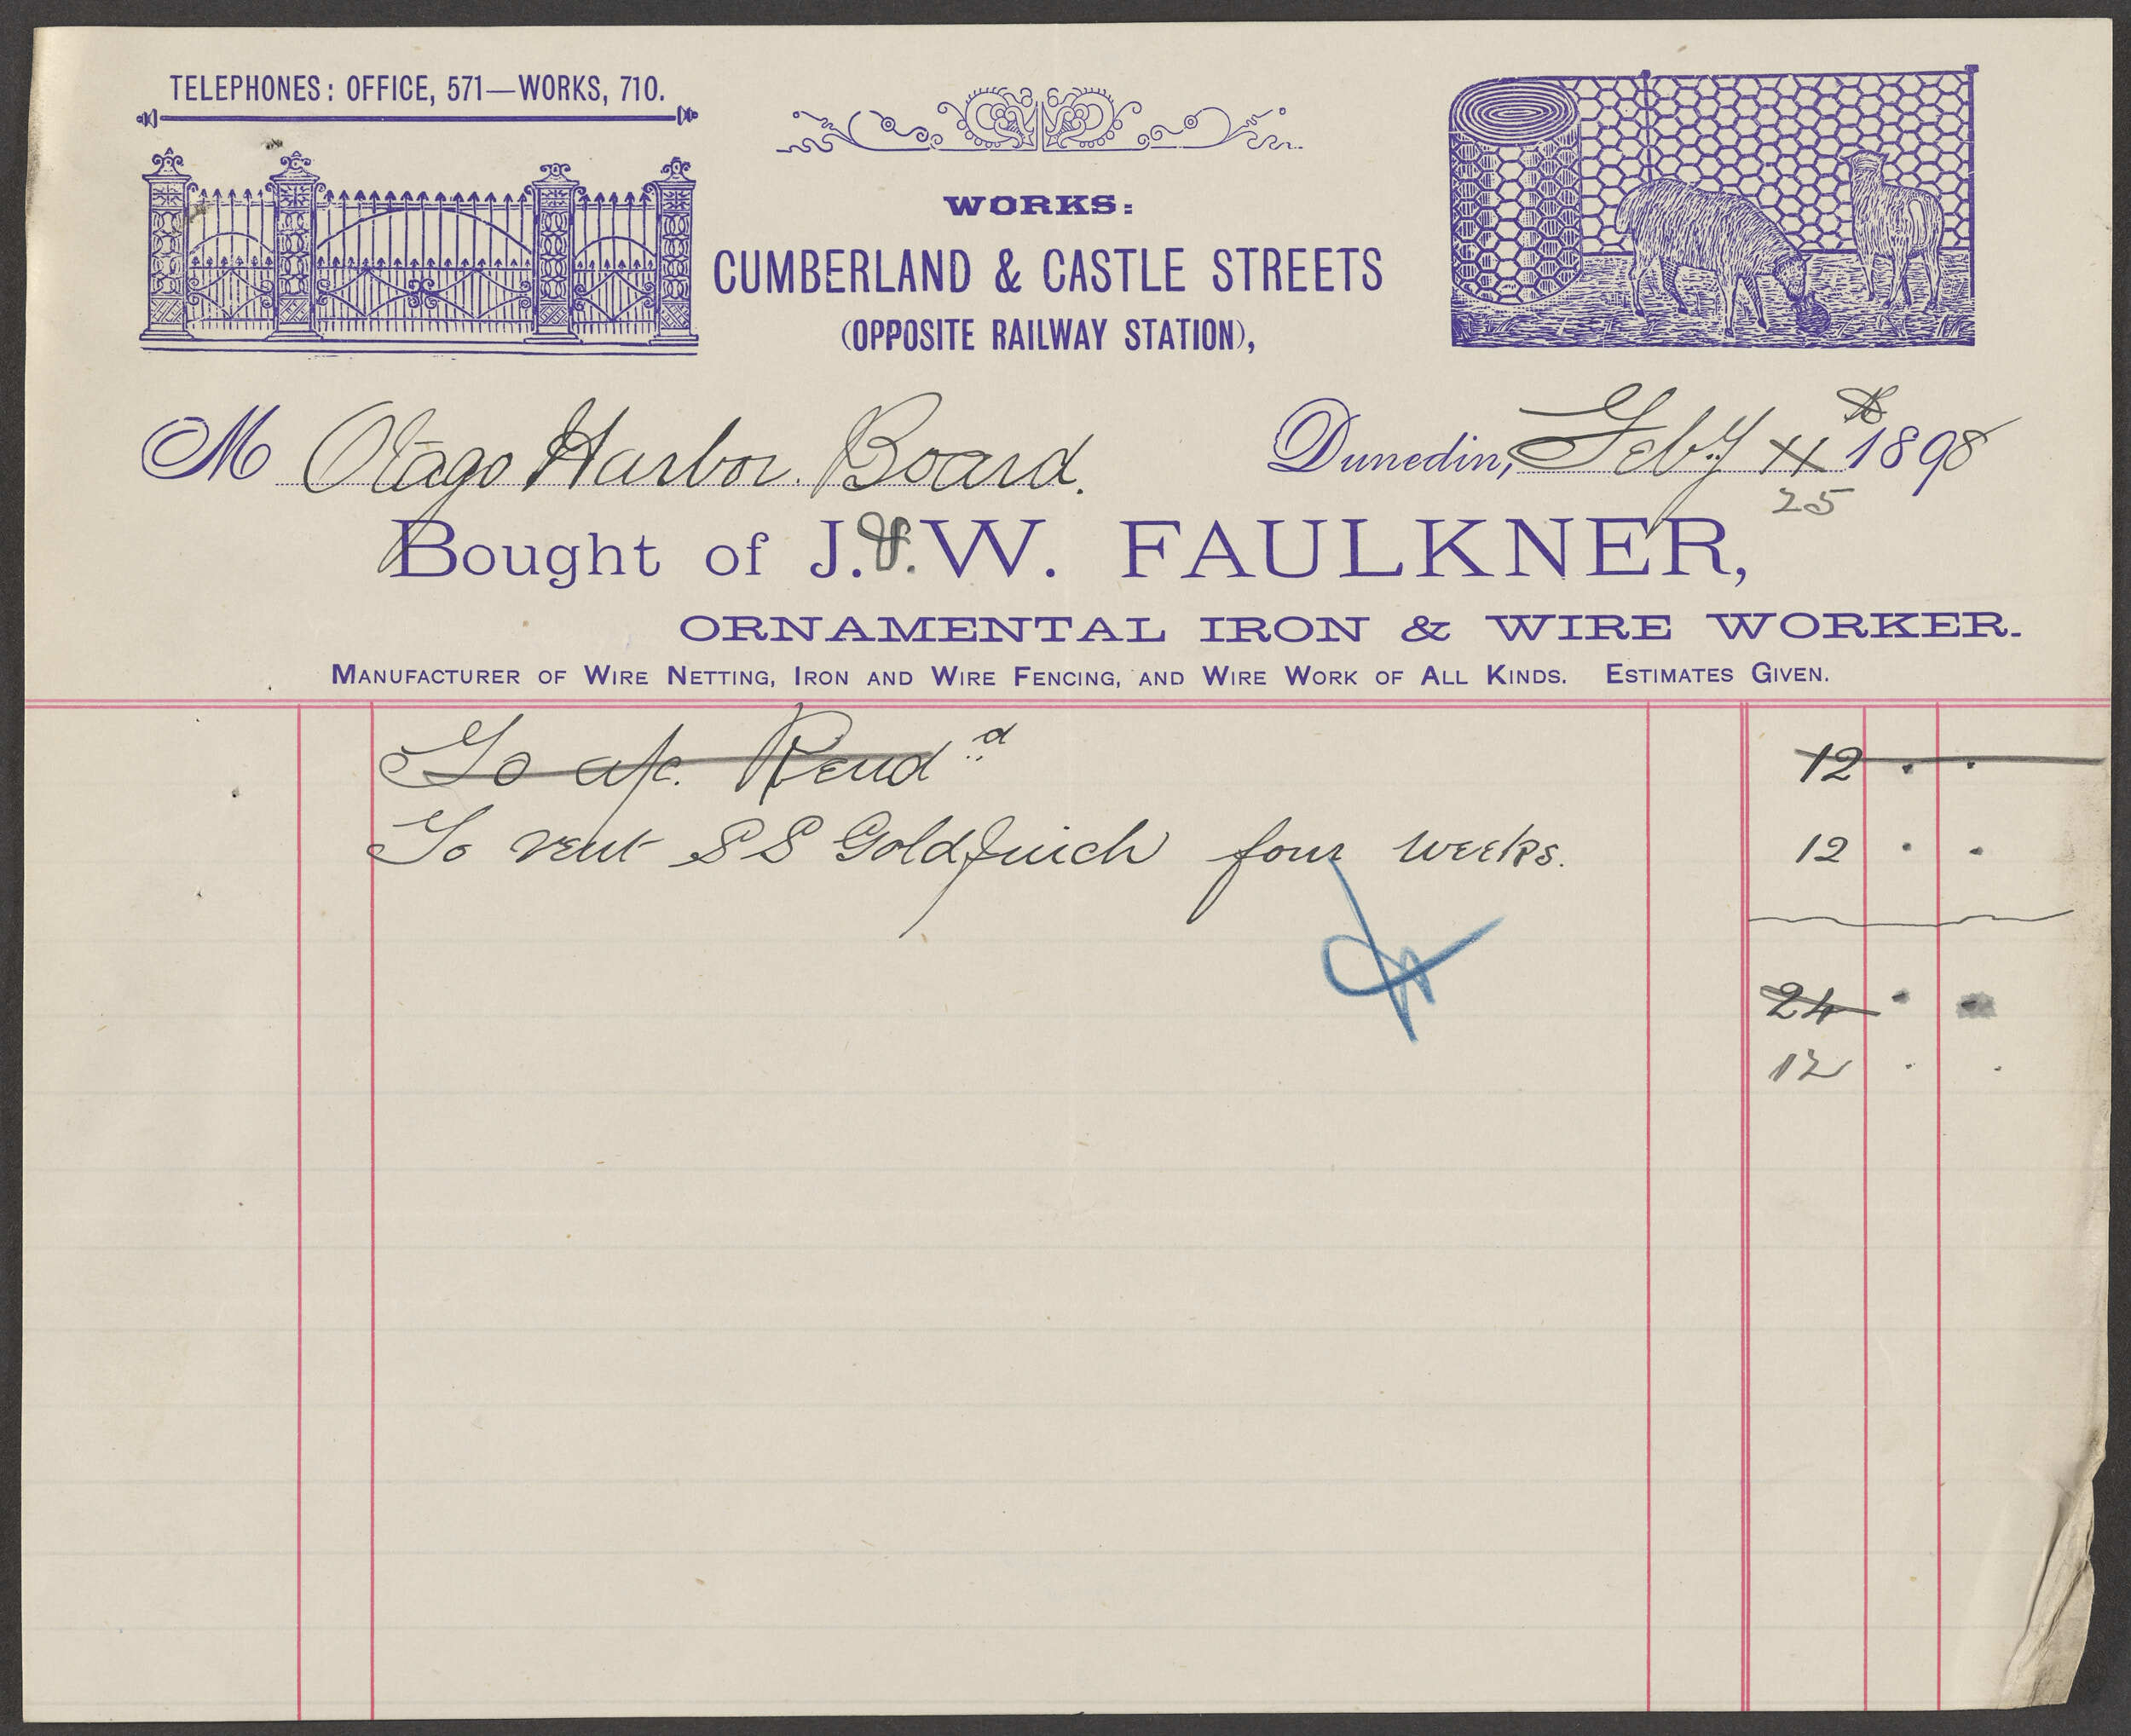 TELEPHONES: OFFICE, 571—WORKS, 710.
WORKS:
CUMBERLAND & CASTLE STREETS
(OPPOSITE RAILWAY STATION),
M Otago Harbor Board.
Dunedin, Feby 11th 1898
25
Bought of J. & W. FAULKNER,
ORNAMENTAL IRON & WIRE WORKER.
MANUFACTURER OF WIRE NETTING, IRON AND WIRE FENCING, AND WIRE WORK OF ALL KINDS. ESTIMATES GIVEN.
To a/c. Rend d 12 . .
To rent SS Goldfinch four weeks. 12 . .
24 . .
12 . .